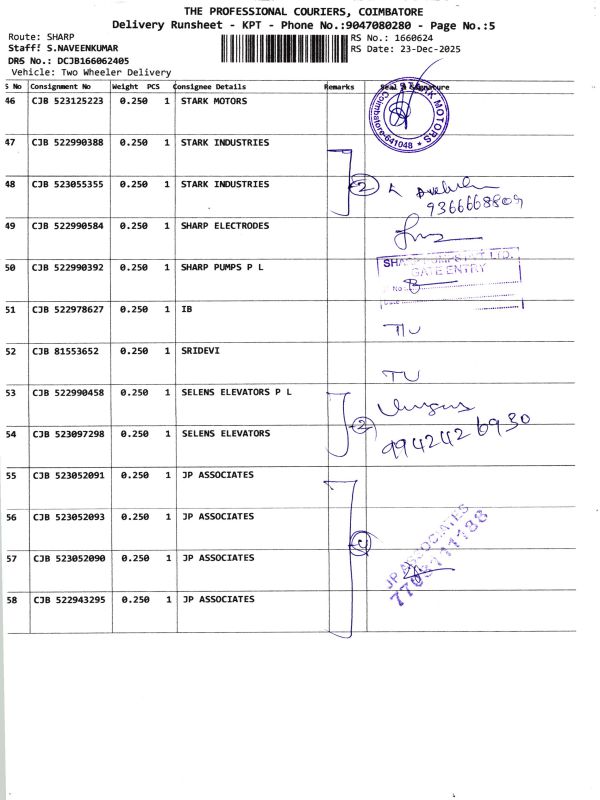 THE PROFESSIONAL COURIERS, COIMBATORE
Delivery Runsheet - KPT - Phone No.:9047080280 - Page No.:5
Route: SHARP
RS No.: 1660624
Staff: S.NAVEENKUMAR
RS Date: 23-Dec-2025
DRS No.: DCJB166062405
Vehicle: Two Wheeler Delivery
S No Consignment No Weight PCS Consignee Details Remarks Seal & Signature
46 CJB 523125223 0.250 1 STARK MOTORS
STARK MOTORS Coimbatore-641048
47 CJB 522990388 0.250 1 STARK INDUSTRIES
48 CJB 523055355 0.250 1 STARK INDUSTRIES
2
9366668809
49 CJB 522990584 0.250 1 SHARP ELECTRODES
50 CJB 522990392 0.250 1 SHARP PUMPS P L
SHARP PUMPS PVT. LTD.
GATE ENTRY
No
Date
51 CJB 522978627 0.250 1 IB
52 CJB 81553652 0.250 1 SRIDEVI
53 CJB 522990458 0.250 1 SELENS ELEVATORS P L
2
54 CJB 523097298 0.250 1 SELENS ELEVATORS
9942426930
55 CJB 523052091 0.250 1 JP ASSOCIATES
56 CJB 523052093 0.250 1 JP ASSOCIATES
4
57 CJB 523052090 0.250 1 JP ASSOCIATES
JP ASSOCIATES
58 CJB 522943295 0.250 1 JP ASSOCIATES